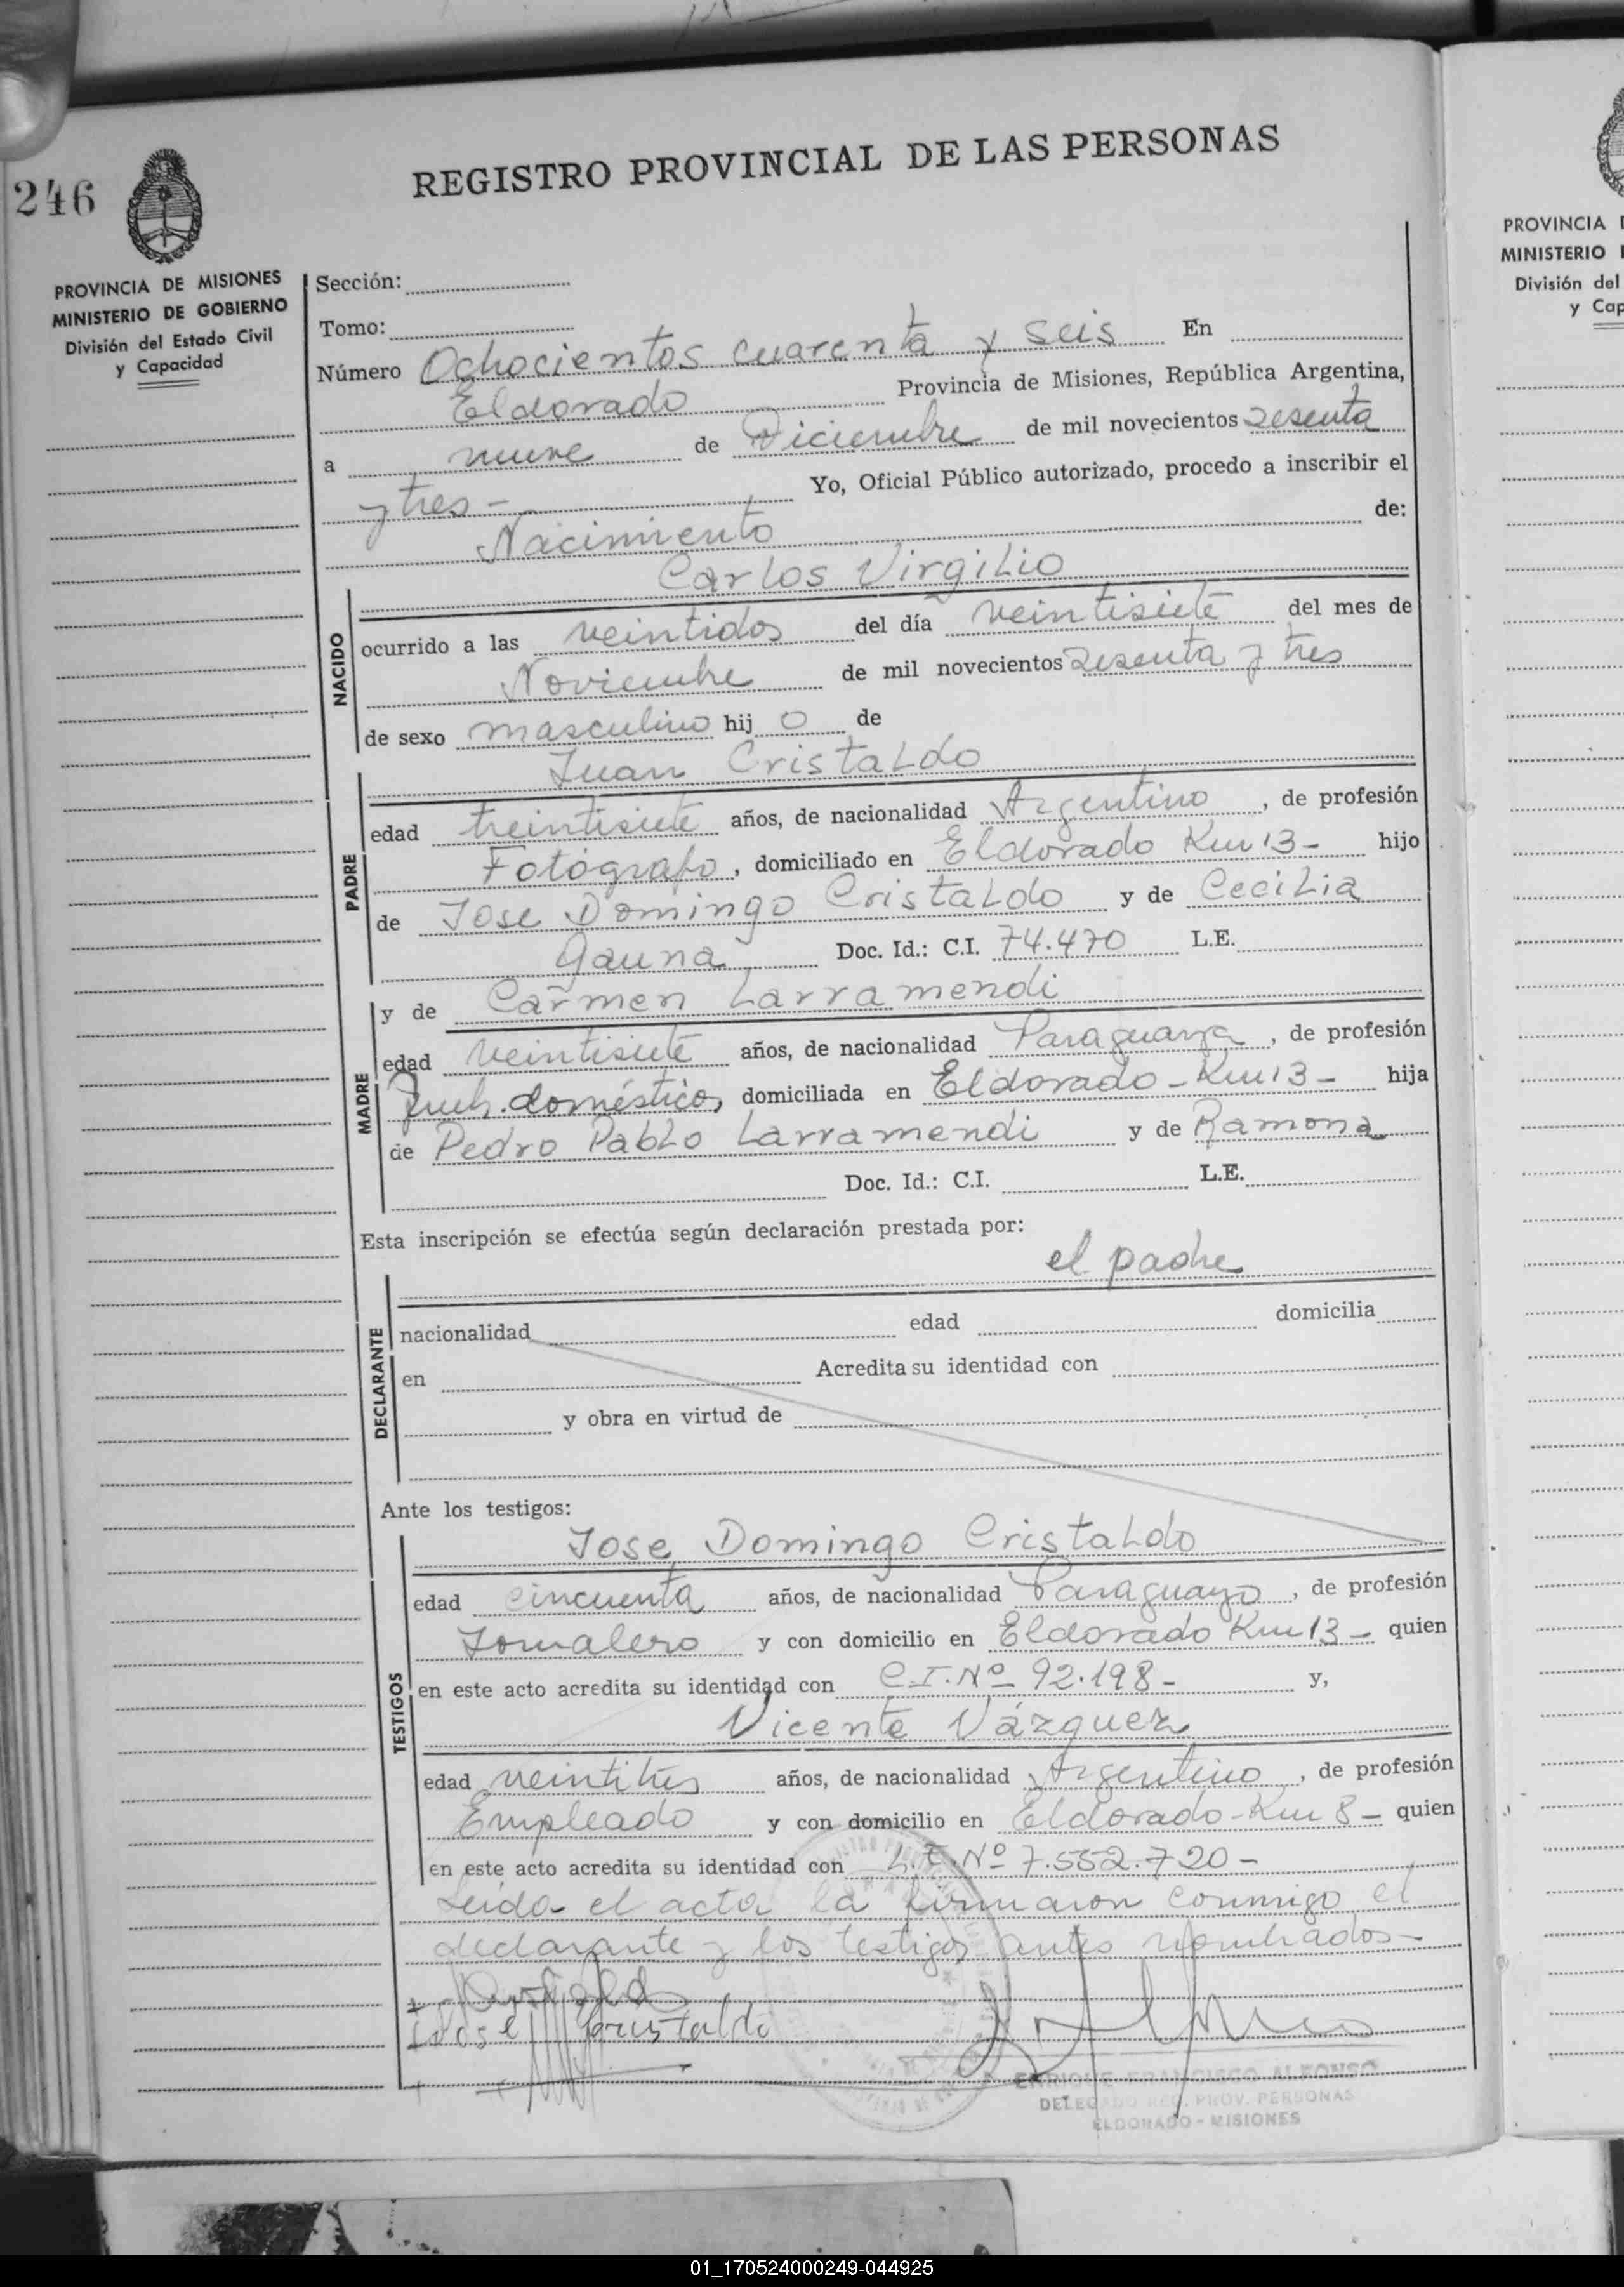 REGISTRO PROVINCIAL DE LAS PERSONAS
246
PROVINCIA DE MISIONES
MINISTERIO DE GOBIERNO
División del Estado Civil
y Capacidad
Sección:
Tomo:
Número Ochocientos cuarenta y seis En
Eldorado Provincia de Misiones, República Argentina,
a nueve de Diciembre de mil novecientos sesenta
y tres- Yo, Oficial Público autorizado, procedo a inscribir el
Nacimiento de:
Carlos Virgilio
NACIDO
ocurrido a las veintidos del día veintisiete del mes de
Noviembre de mil novecientos sesenta y tres
de sexo masculino hij o de
Juan Cristaldo
PADRE
edad treintisiete años, de nacionalidad Argentino, de profesión
Fotógrafo, domiciliado en Eldorado Km 13- hijo
de Jose Domingo Cristaldo y de Cecilia
Gauna Doc. Id.: C.I. 74.470 L.E.
y de Carmen Larramendi
MADRE
edad veintisiete años, de nacionalidad Paraguaya, de profesión
domésticos, domiciliada en Eldorado-Km 13- hija
de Pedro Pablo Larramendi y de Ramona
Doc. Id.: C.I. L.E.
Esta inscripción se efectúa según declaración prestada por:
el padre
DECLARANTE
nacionalidad edad domicilia
en Acredita su identidad con
y obra en virtud de
Ante los testigos:
Jose Domingo Cristaldo
TESTIGOS
edad cincuenta años, de nacionalidad Paraguayo, de profesión
Jornalero y con domicilio en Eldorado Km 13- quien
en este acto acredita su identidad con C.I. Nº 92.198- y,
Vicente Vázquez
edad veintitres años, de nacionalidad Argentino, de profesión
Empleado y con domicilio en Eldorado-Km 8- quien
en este acto acredita su identidad con L.E. Nº 7.552.720-
Leida el acta la firmaron conmigo el
declarante y los testigos antes nombrados-
Jose Cristaldo
ENRIQUE FRANCISCO ALFONSO
DELEGADO REG. PROV. PERSONAS
ELDORADO - MISIONES
PROVINCIA
MINISTERIO
División del
y Cap
01_170524000249-044925